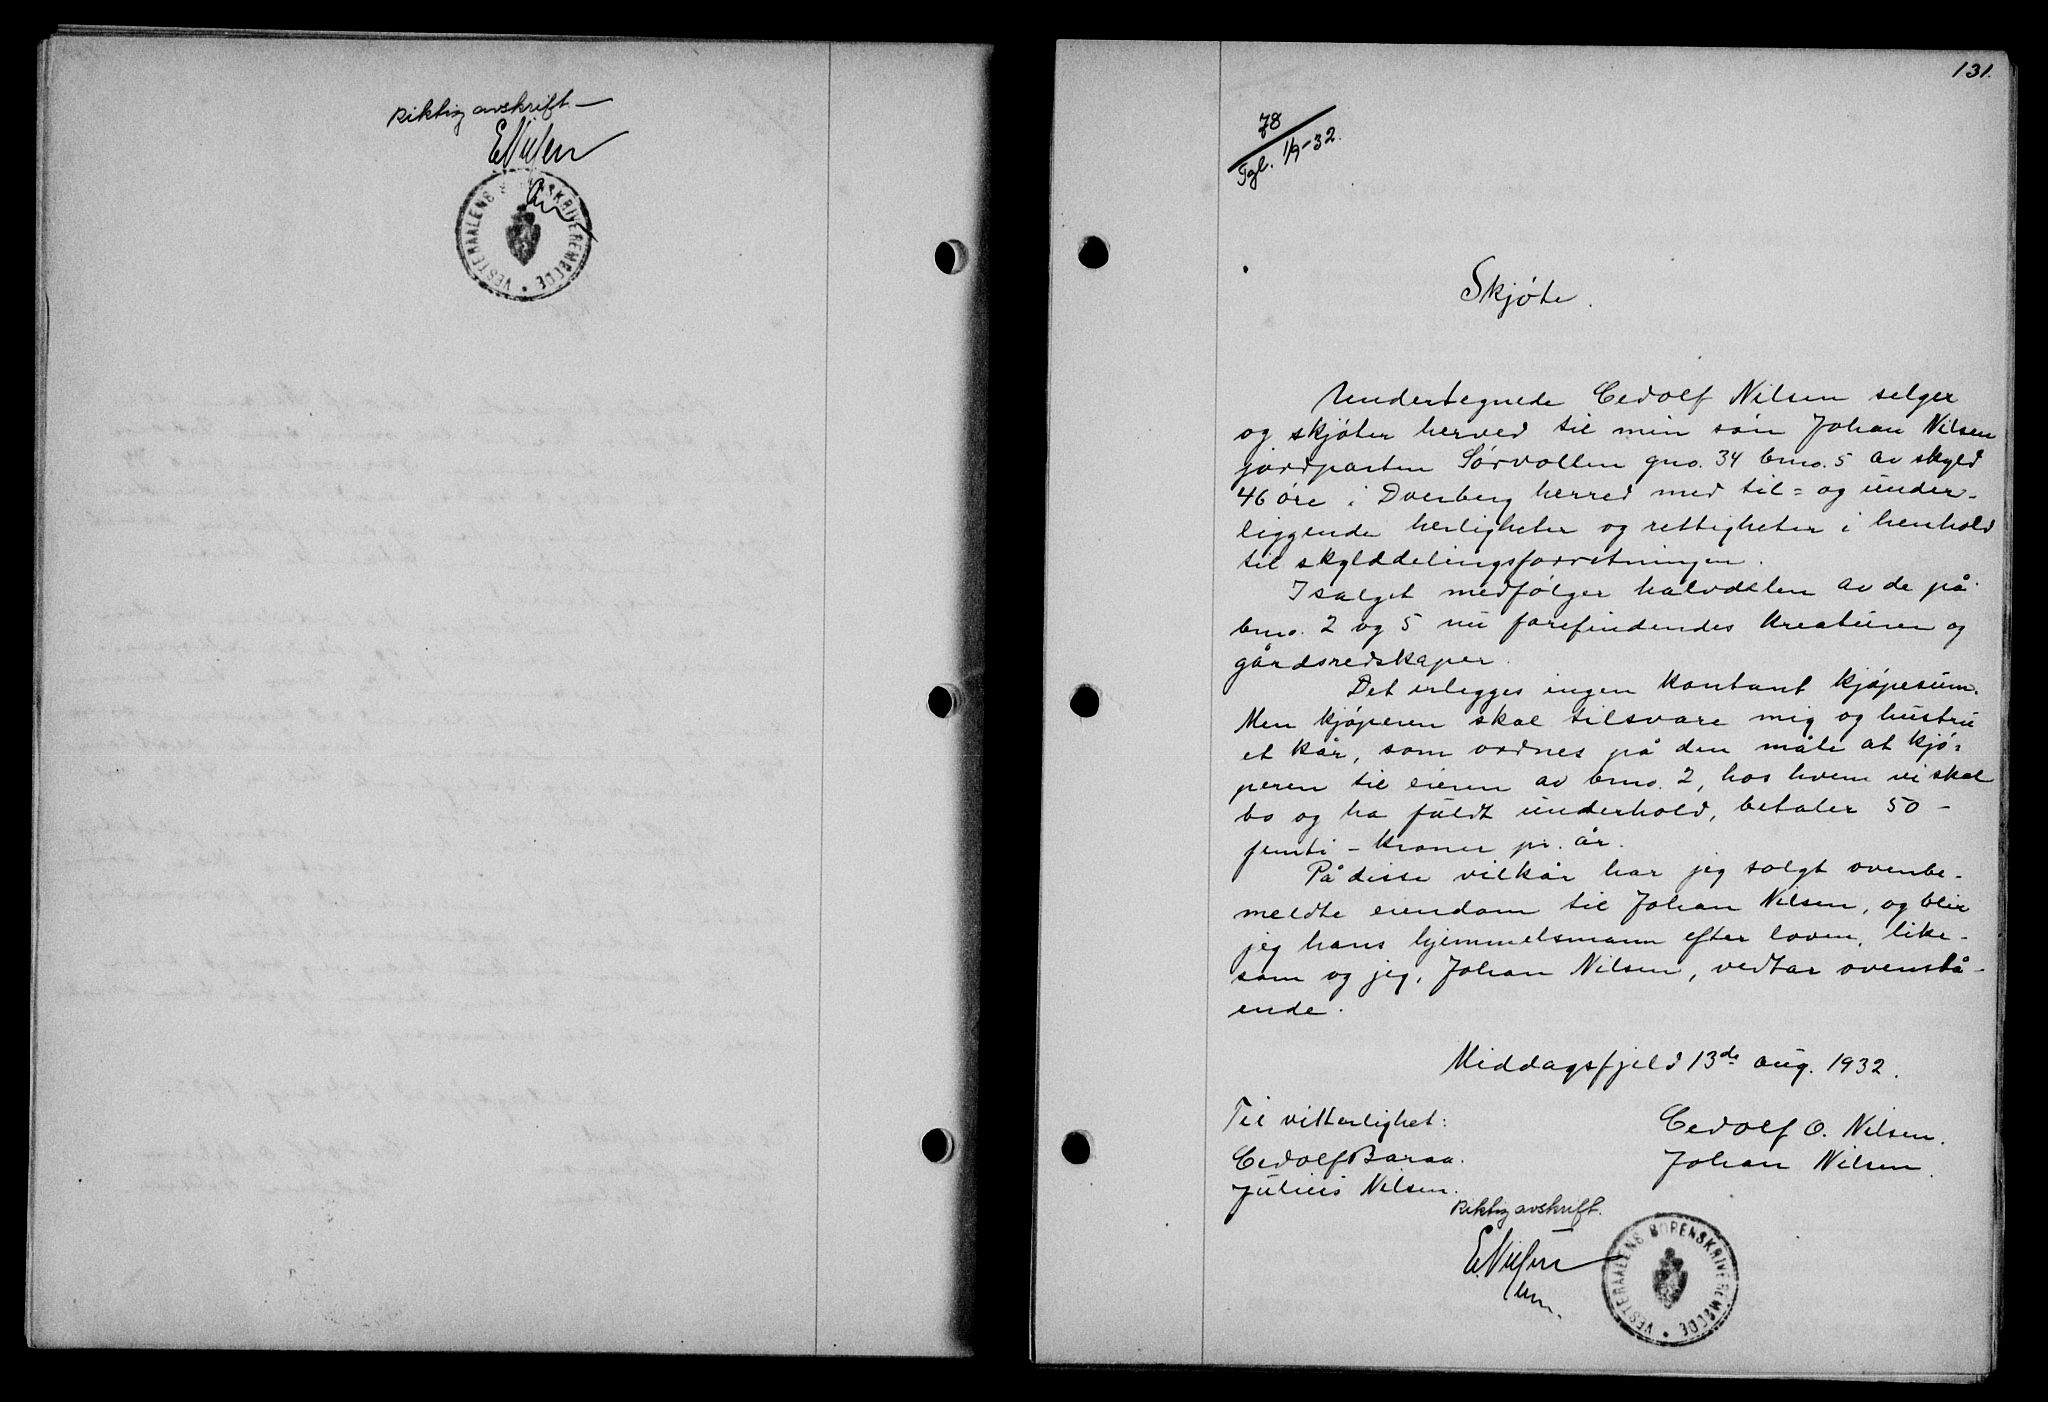 Riktig avskrift
ENilsen
VESTERAALENS SORENSKRIVEREMBEDE
131.
78
Tgl. 1/9-32.
Skjøte.
Undertegnede Cedolf Nilsen selger
og skjøter herved til min søn Johan Nilsen
jordparten Sørvollen gno. 34 bno. 5 av skyld
46 øre i Dverberg herred med til= og under-
liggende herligheter og rettigheter i henhold
til skylddelingsforretningen.
I salget medfølger halvdelen av de på
bno. 2 og 5 nu forefindendes kreaturer og
gårdsredskaper.
Det erlegges ingen kontant kjøpesum.
Men kjøperen skal tilsvare mig og hustru
et kår, som ordnes på den måte at kjø=
peren til eieren av bno. 2, hos hvem vi skal
bo og ha fuldt underhold, betaler 50 -
femti - kroner pr. år.
På disse vilkår har jeg solgt ovenbe-
meldte eiendom til Johan Nilsen, og blir
jeg hans hjemmelsmann efter loven, like-
som og jeg, Johan Nilsen, vedtar ovenstå-
ende.
Middagsfjeld 13de aug. 1932.
Til vitterlighet:
Cedolf O. Nilsen.
Cedolf Baraa.
Johan Nilsen.
Julius Nilsen.
Riktig avskrift.
E.Nilsen
VESTERAALENS SORENSKRIVEREMBEDE